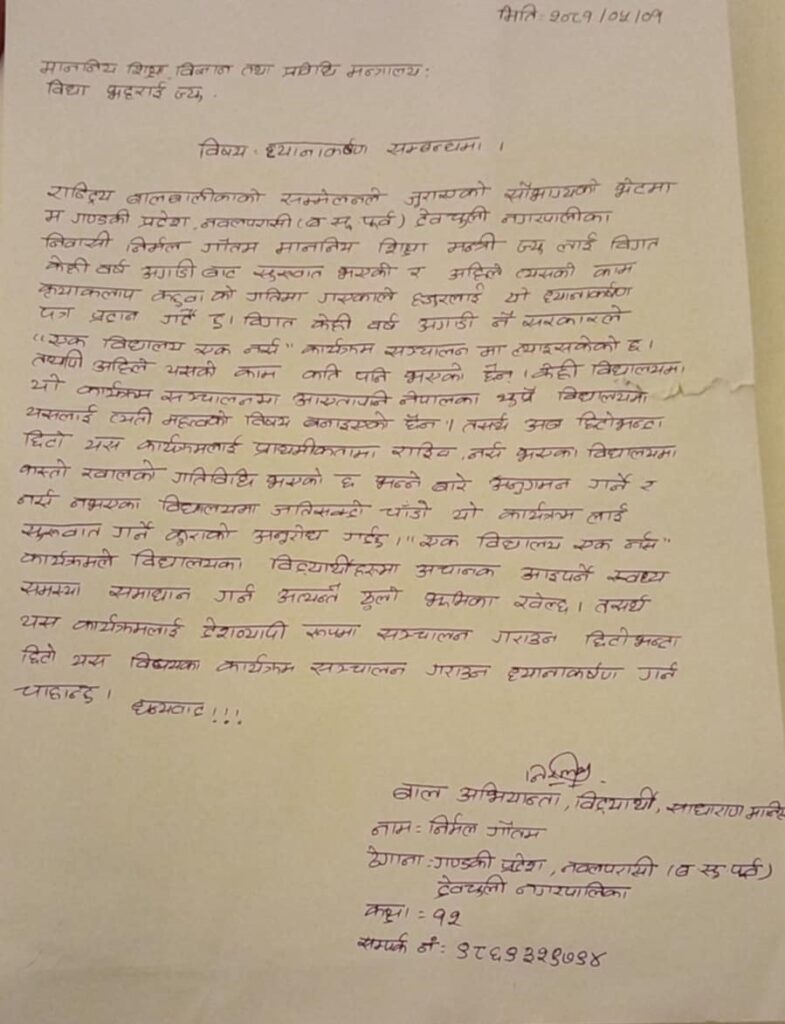 मिति: २०८१/०५/०१
माननिय शिक्षा विज्ञान तथा प्रविधि मन्त्रालय:
विद्या भट्टराई ज्यू .
विषय: ध्यानाकर्षण सम्बन्धमा ।
राष्ट्रिय बालबालीकाको सम्मेलनले जुराएको सौभाग्यको भेटमा
म गण्डकी प्रदेश, नवलपरासी (ब सु पूर्व) देवचुली नगरपालीका
निवासी निर्मल गौतम माननिय शिक्षा मन्त्री ज्यू लाई विगत
केही वर्ष अगाडी बाट सुरुवात भएको र अहिले त्यसको काम
कृयाकलाप कछुवा को गतिमा गएकाले हजुरलाई यो ध्यानाकर्षण
पत्र प्रदान गर्दै छु। विगत केही वर्ष अगाडी नै सरकारले
"एक विद्यालय एक नर्स" कार्यक्रम सञ्चालन मा ल्याइसकेको छ।
तथापि अहिले यसको काम कति पनि भएको छैन। केही विद्यालयमा
यो कार्यक्रम सञ्चालनमा आएतापनि नेपालका थुप्रै विद्यालयमा
यसलाई त्यती महत्वको विषय बनाइएको छैन। तसर्थ अब छिटोभन्दा
छिटो यस कार्यक्रमलाई प्राथमीकतामा राखि, नर्स भएका विद्यालयमा
कस्तो खालको गतिविधि भएको छ भन्ने बारे अनुगमन गर्ने र
नर्स नभएका विद्यालयमा जतिसक्दो चाँडो यो कार्यक्रम लाई
सुरुवात गर्ने कुराको अनुरोध गर्दछु। "एक विद्यालय एक नर्स"
कार्यक्रमले विद्यालयका विद्यार्थीहरुमा अचानक आइपर्ने स्वथ्य
समस्या समाधान गर्न अत्यन्तै ठुलो भूमिका खेल्छ। तसर्थ
यस कार्यक्रमलाई देशव्यापी रूपमा सञ्चालन गराउन छिटोभन्दा
छिटो यस विषयका कार्यक्रम सञ्चालन गराउन ध्यानाकर्षण गर्न
चाहान्छु।
धन्यवाद!!!
बाल अभियान्ता, विद्यार्थी, साधाराण
नाम: निर्मल गौतम
ठेगाना: गण्डकी प्रदेश, नवलपरासी (ब सु पूर्व)
देवचुली नगरपालिका
कक्षा: १२
सम्पर्क नं: ९८६१३२९७९४